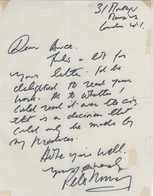 31
London W.1.
Dear Bruce.
Thanks a lot for
your letter. I'd be
delighted to read your
work. As to whether I
could read it
that is a decision that
could only be made by
my Producers.
Hope you well.
Yours sincerely
Pete Murray